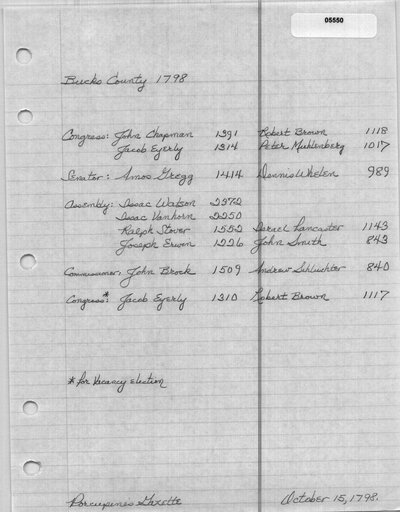 05550
Bucks County 1798
Congress: John Chapman 1391 Robert Brown 1118
Jacob Eyerly 1314 Peter Muhlenberg 1017
Senator: Amos Gregg 1414 Dennis Whelen 989
Assembly: Isaac Watson 2372
Isaac Vanhorn 2250
Ralph Stover 1552 Israel Lancaster 1143
Joseph Erwin 1226 John Smith 843
Commissioner: John Brock 1509 Andrew Schlichter 840
Congress*: Jacob Eyerly 1310 Robert Brown 1117
* for Vacancy election
Porcupines Gazette October 15, 1798.